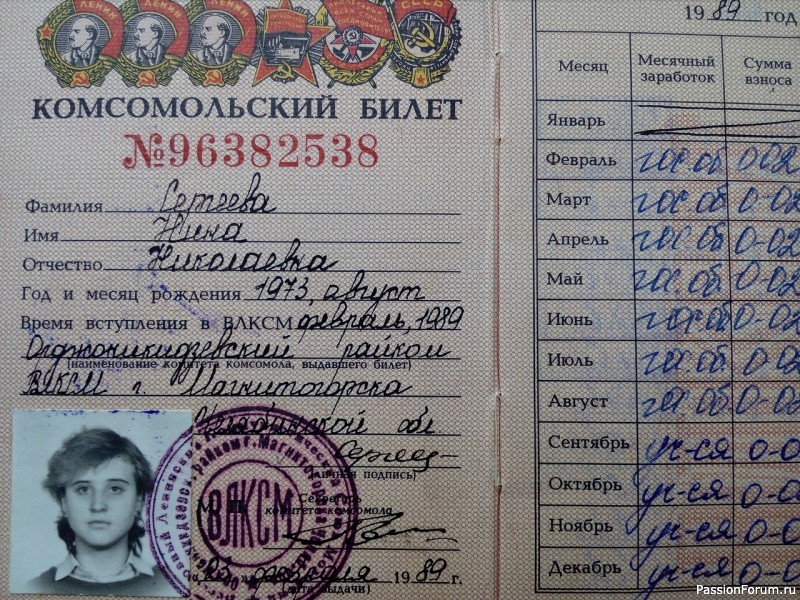 ЛЕНИН ЛЕНИН ЛЕНИН СССР
КОМСОМОЛЬСКИЙ БИЛЕТ
№96382538
Фамилия Сергеева
Имя Нина
Отчество Николаевна
Год и месяц рождения 1973, август
Время вступления в ВЛКСМ февраль, 1989
Орджоникидзевский райком
(наименование комитета комсомола, выдавшего билет)
ВЛКСМ г. Магнитогорска
Челябинской обл
Сергее
(личная подпись)
Секретарь
комитета комсомола
ВЛКСМ
февраля 1989 г.
(дата выдачи)
1989 год
Месяц Месячный заработок Сумма взноса
Январь
Февраль гос.об 0-02
Март гос.об 0-02
Апрель гос.об 0-02
Май гос.об. 0-02
Июнь гос.об 0-02
Июль гос.об. 0-02
Август гос.об 0-02
Сентябрь уч-ся 0-0
Октябрь уч-ся 0-0
Ноябрь уч-ся 0-0
Декабрь уч-ся 0-0
PassionForum.ru